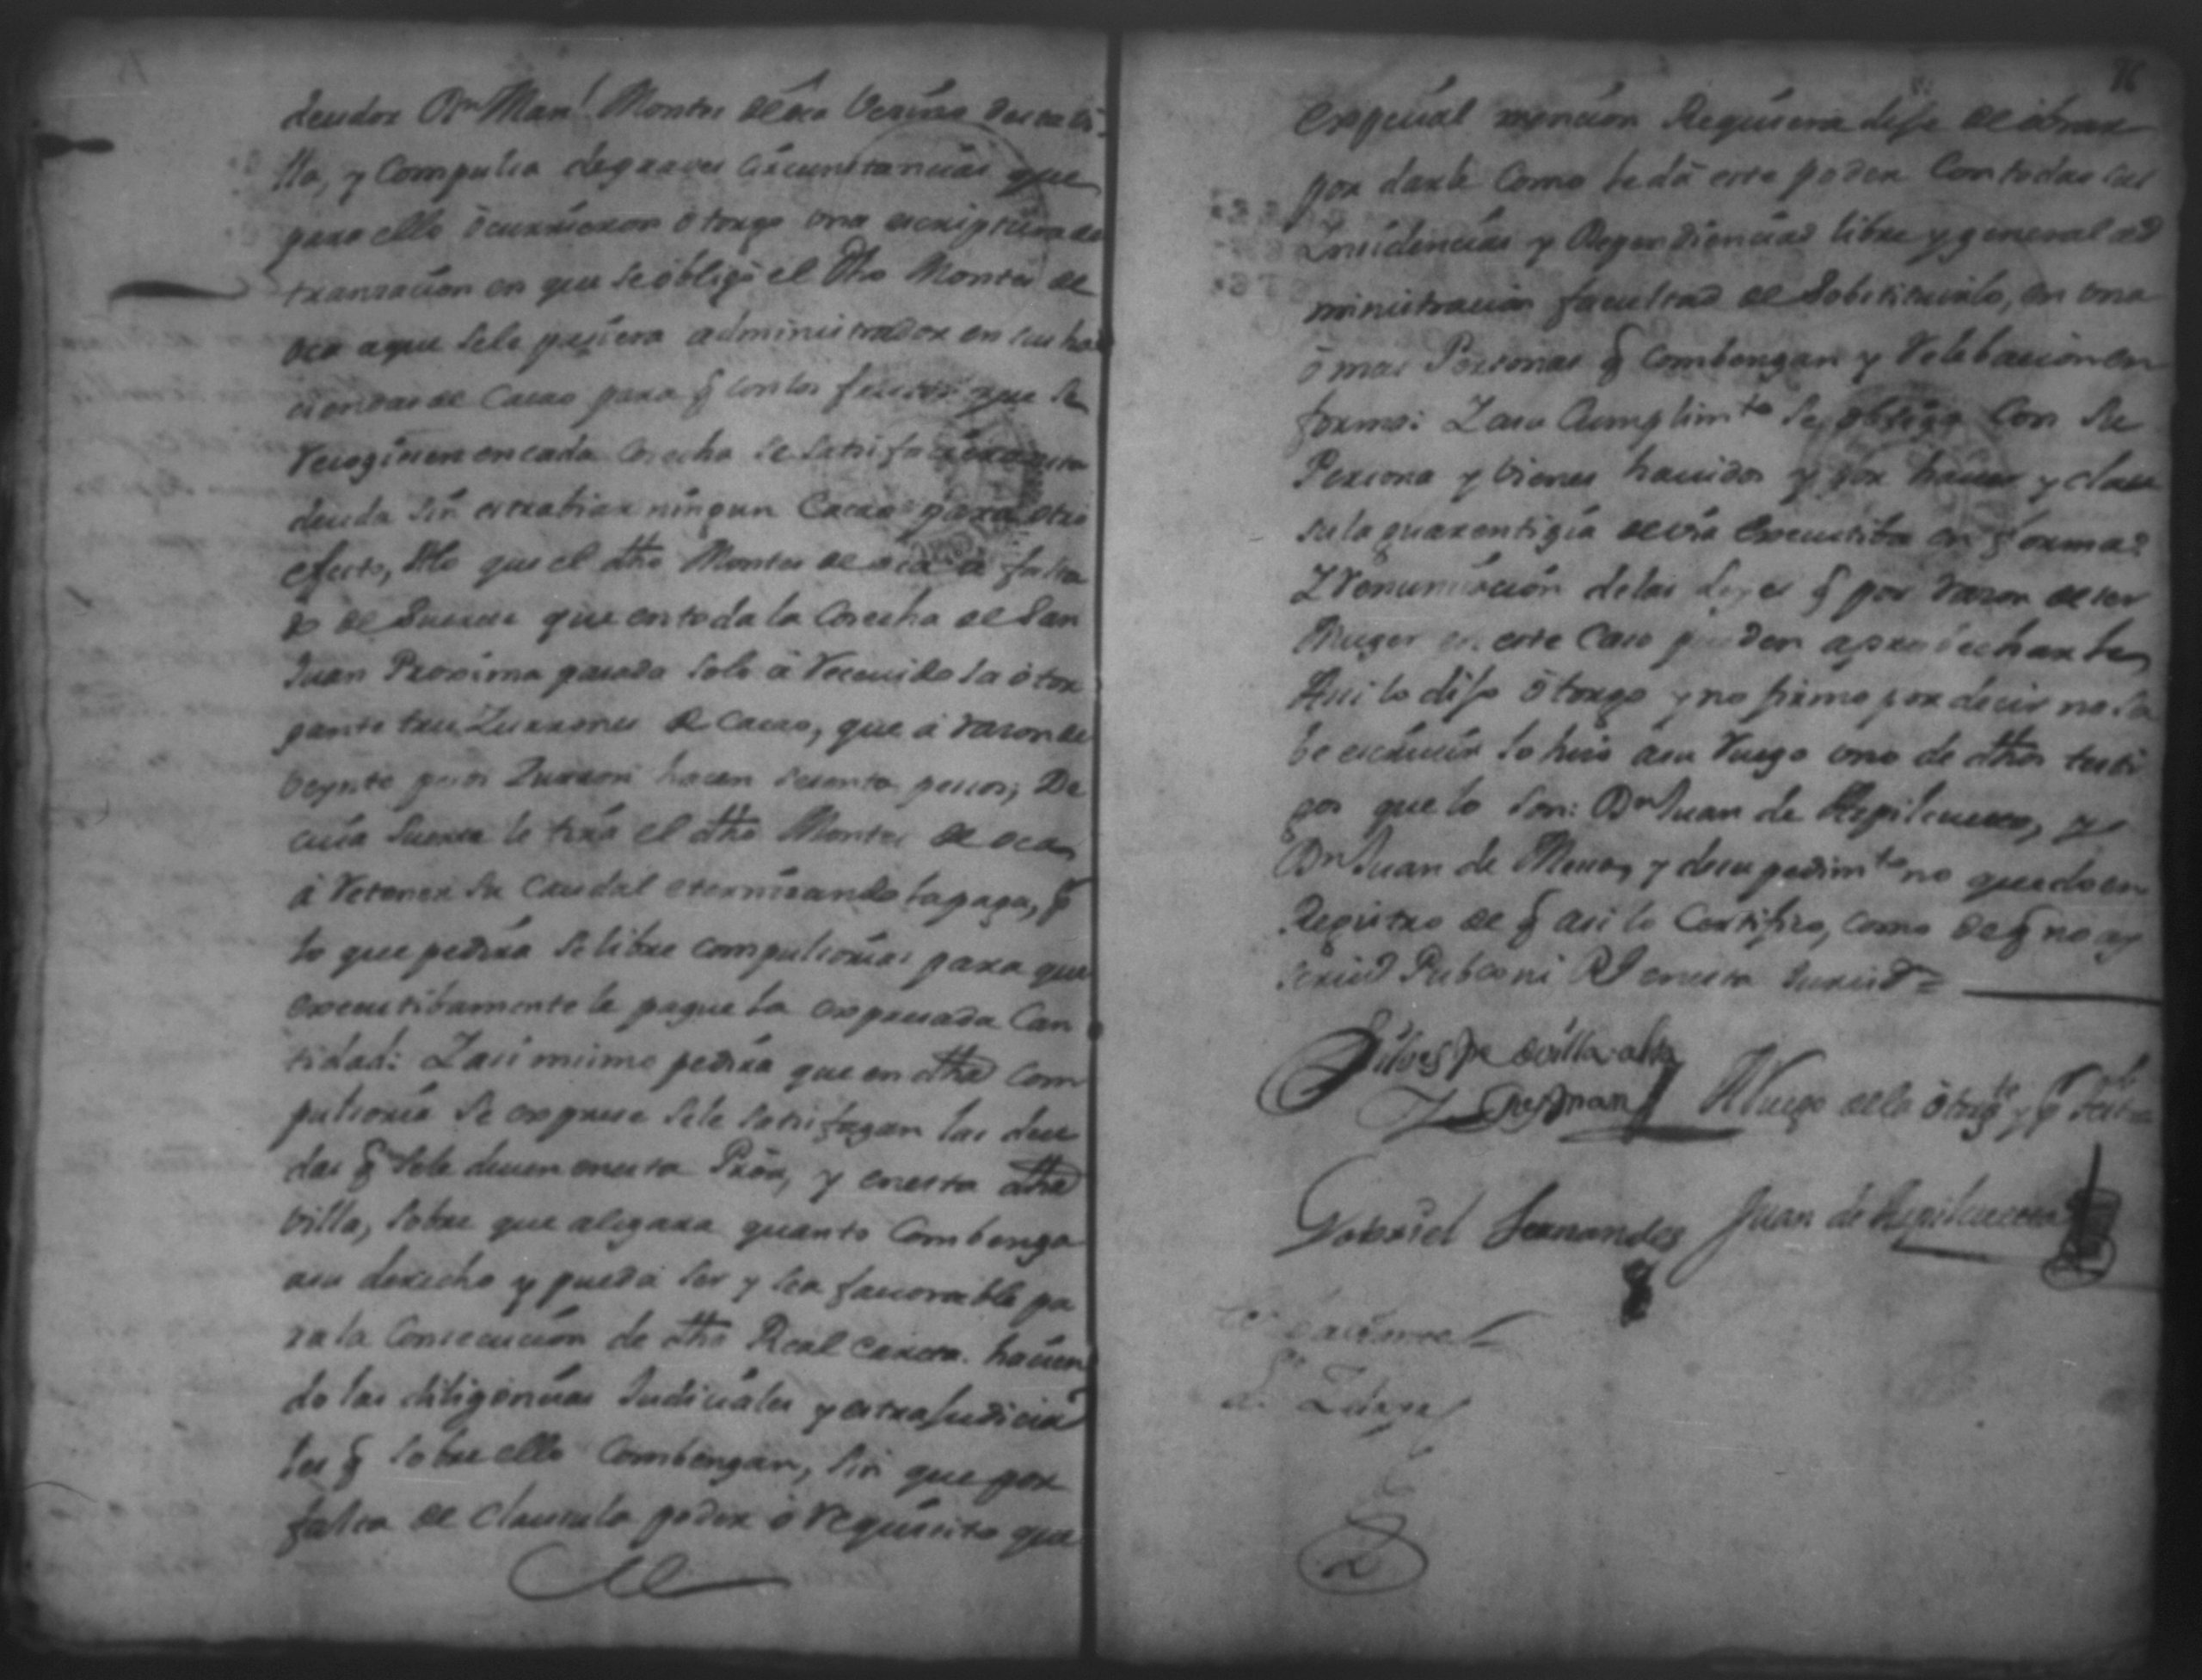 deudor Dn Manl. Montes de oca Vezino desta vi
lla, y Compulsa de graves circunstancias que
para ello ocurrieron otorgo una escriptura de
tranzacion en que se obligó el dho Montes de
oca a que se le pusiera administrador en sus ha
ciendas de Cacao para q con los frutos que se
recoginen en cada Cosecha se satisfaciera esta
deuda sin extrahiar ningun Cacao para otro
efecto, A lo que el dho Montes de oca á falta
do de Suerte que en toda la Cosecha de San
Juan Proxima pasada solo á recevido la otor
gante tres Zurrones de Cacao, que á razon de
veynte pesos Zurron hacen sesenta pesos; De
cuia Suerte le tira el dho Montes de oca
á retener su Caudal eternizando la paga, p
lo que pedira se libre compulsorias para que
executibamente le pague la expresada Can
tidad: Y asi mismo pedira que en dha Com
pulsoria se exprese se le satisfagan las deu
das q se le deven en esta Proa, y en esta dha
villa, sobre que alegara quanto Combenga
a su derecho y pueda ser y sea favorable pa
ra la Consecucion de dha Real Carta. hacien
do las diligencias Judiciales y extrajudicia
les q sobre ello Combengan, sin que por
falta de clausula poder ó requisito que
76
expecial mencion Requiera deje de obrar
por darle Como le dá este poder Con todas sus
Insidencias y Dependiencias libre y general ad
ministracion facultad de Sobstituirlo, en una
ó mas Personas q Combengan y relebacion en
forma: Y a su Cumplimto se obligo Con su
Persona y bienes havidos y por haver y clau
sula guarentigia de via executiba en forma:
Y renunciacion de las Leyes q por razon de ser
Muger en este Caso pueden aprobecharle,
Asi lo dijo otorgo y no firmo por decir no sa
be escrivir lo hizo a su ruego uno de dhos testi
gos que lo son: Dn Juan de Azpilcueta, y
Dn Juan de Mena, y de su pedimto no quedo en
Registro de q asi lo Certifico, como de q no ay
Scrivo Pubco ni Rl en esta Jurisd =
Silvestre de villa-alta
y Guzman
A ruego de la otorgte y p testigo
Gabriel Fernandes
Juan de Azpilcueta